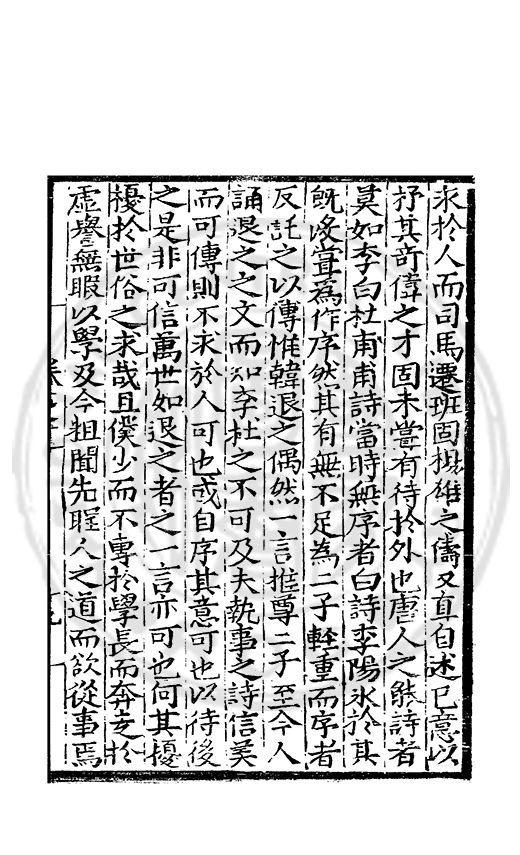 求於人而司馬遷班固揚雄之儔又直自述己意以
抒其奇偉之才固未嘗有待於外也唐人之能詩者
莫如李白杜甫甫詩當時無序者白詩李陽氷於其
既没嘗為作序然其有無不足為二子輕重而序者
反託之以傳惟韓退之偶然一言推尊二子至今人
誦退之之文而知李杜之不可及夫執事之詩信美
而可傳則不求於人可也或自序其意可也以待後
之是非可信萬世如退之者之一言亦可也何其擾
擾於世俗之求哉且僕少而不專於學長而奔走於
虛譽無暇以學及今粗聞先聖人之道而欲從事焉